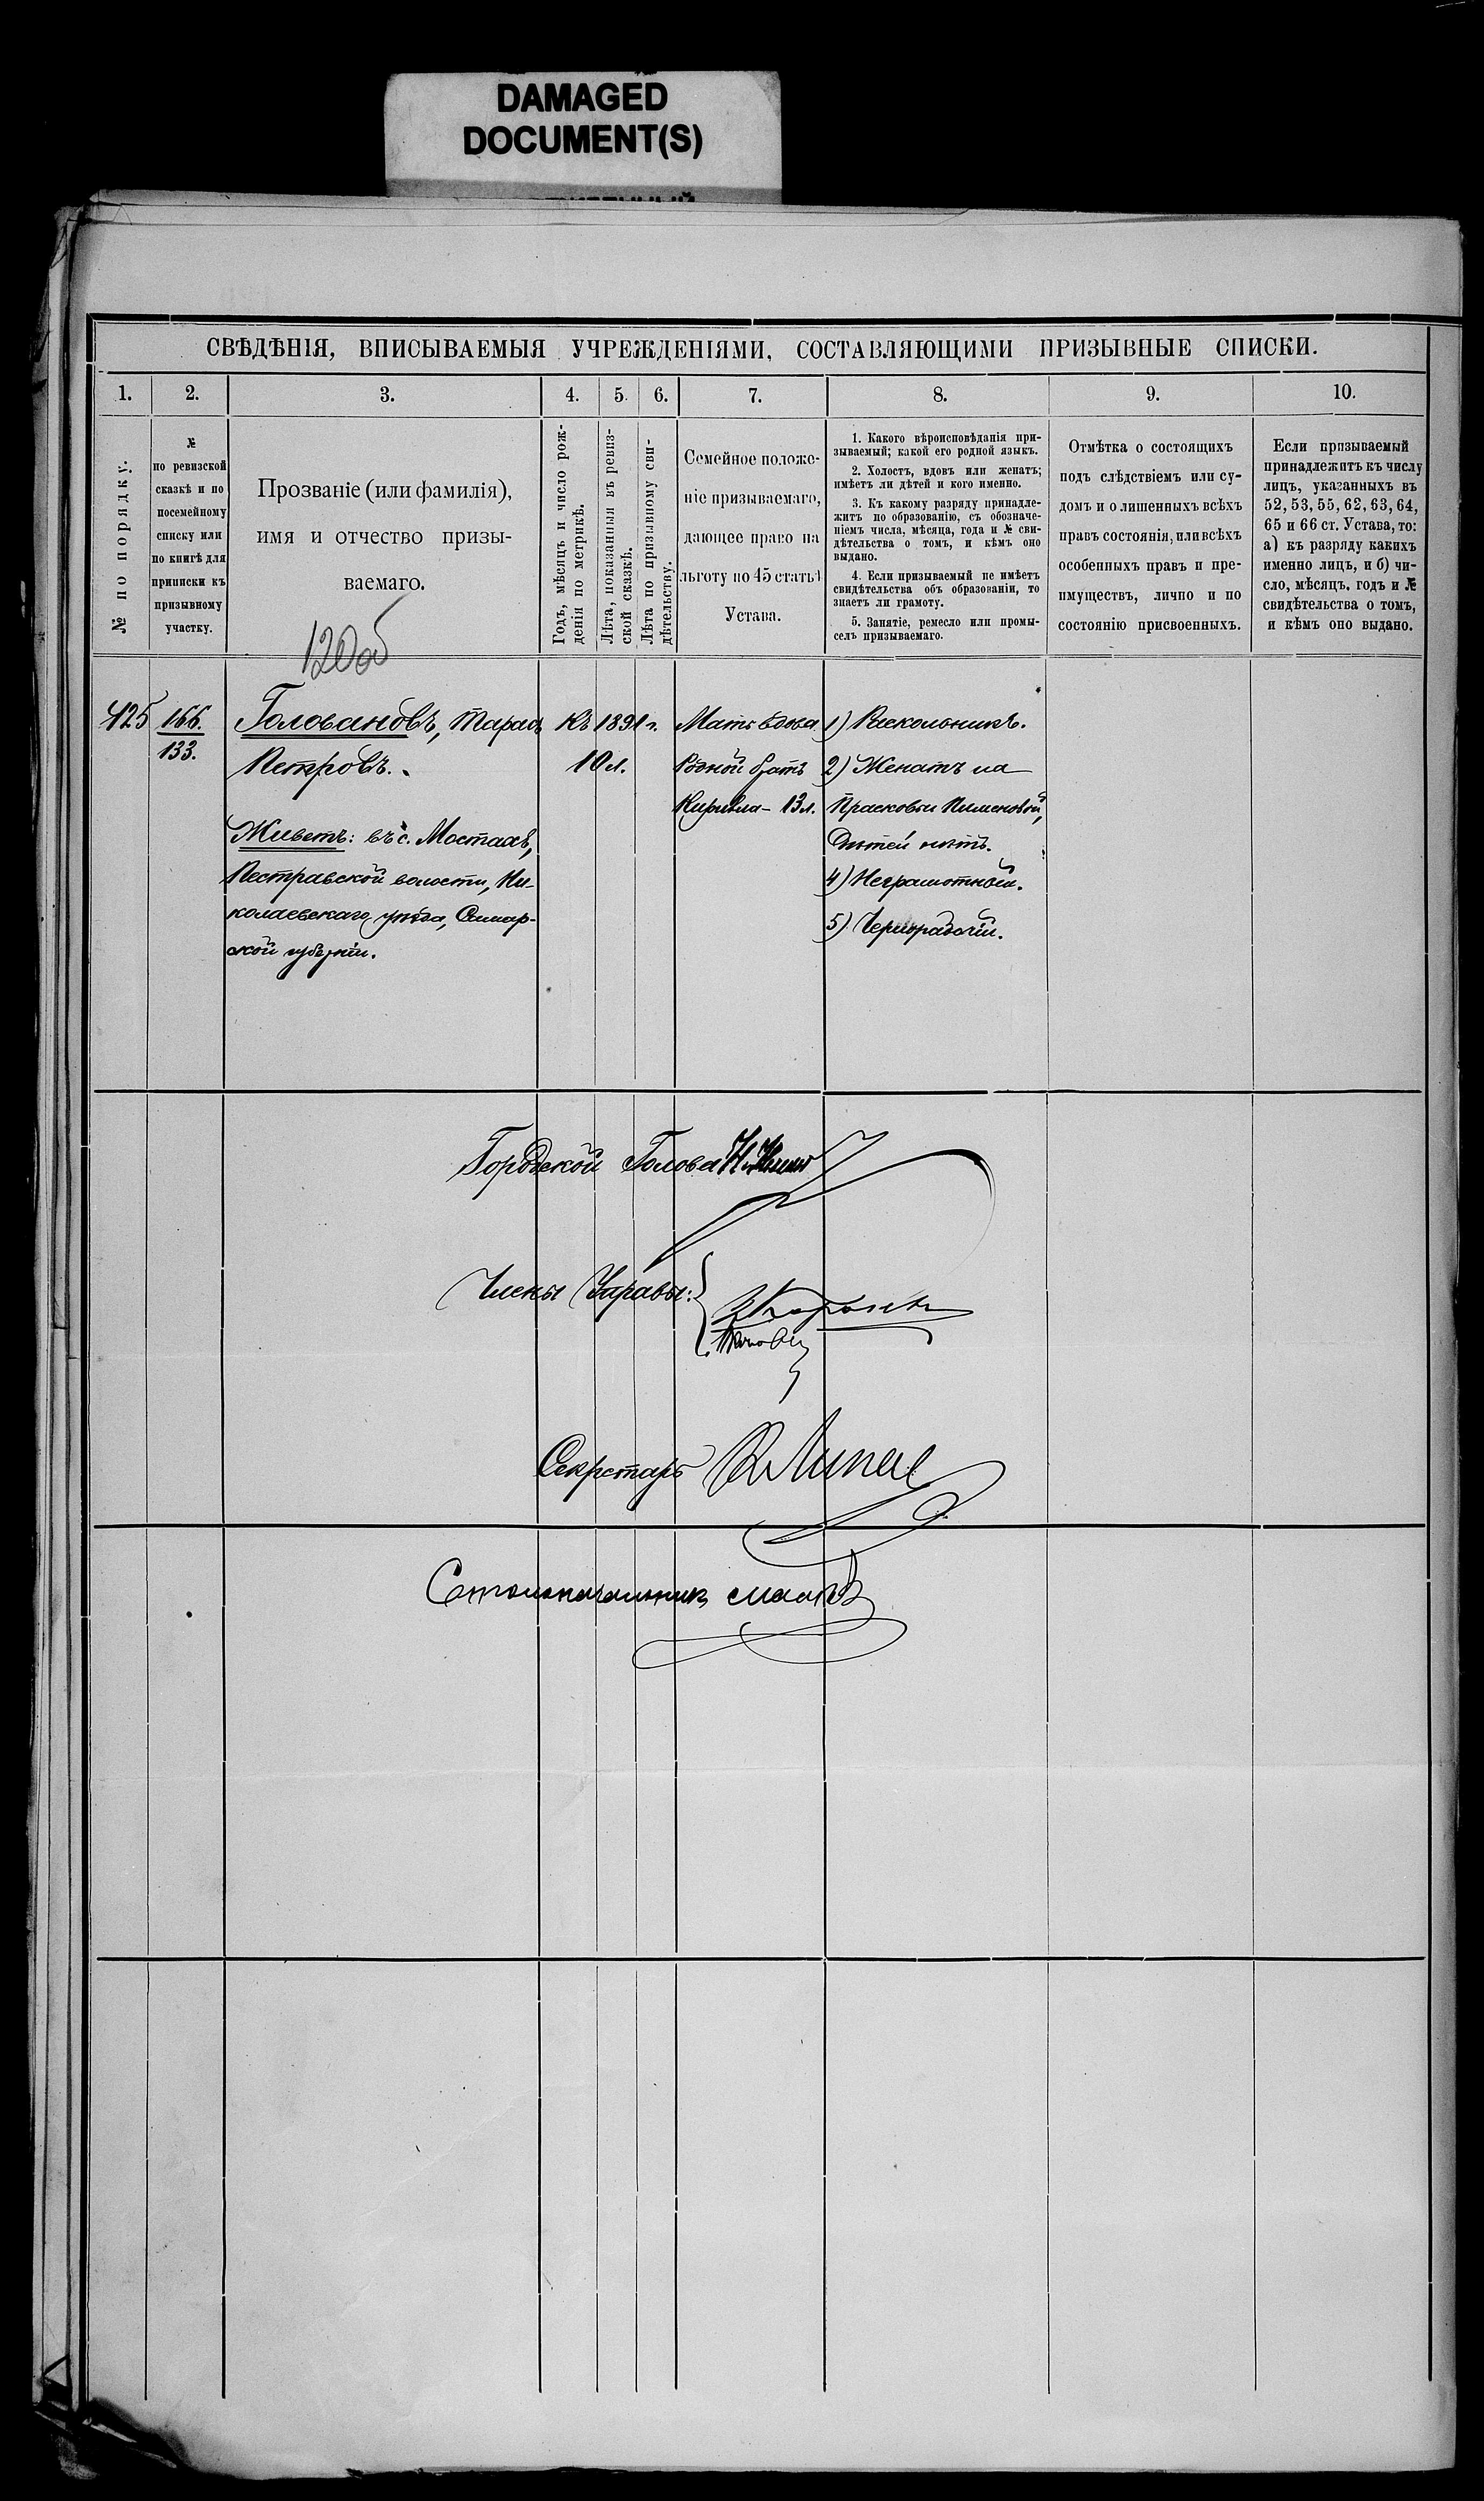 DAMAGED
DOCUMENT(S)
СВѢДѢНІЯ, ВПИСЫВАЕМЫЯ УЧРЕЖДЕНІЯМИ, СОСТАВЛЯЮЩИМИ ПРИЗЫВНЫЕ СПИСКИ.
1. 2. 3. 4. 5. 6. 7. 8. 9. 10.
№ по порядку.
№
по ревизской
сказкѣ и по
посемейному
списку или
по книгѣ для
приписки къ
призывному
участку.
Прозваніе (или фамилія),
имя и отчество призы-
ваемаго.
Годъ, мѣсяцъ и число рож-
денія по метрикѣ.
Лѣта, показанныя въ ревиз-
ской сказкѣ.
Лѣта по призывному сви-
дѣтельству.
Семейное положе-
ніе призываемаго,
дающее право на
льготу по 45 статьѣ
Устава.
1. Какого вѣроисповѣданія при-
зываемый; какой его родной языкъ.
2. Холостъ, вдовъ или женатъ;
имѣетъ ли дѣтей и кого именно.
3. Къ какому разряду принадле-
житъ по образованію, съ обозначе-
ніемъ числа, мѣсяца, года и № сви-
дѣтельства о томъ, и кѣмъ оно
выдано.
4. Если призываемый не имѣетъ
свидѣтельства объ образованіи, то
знаетъ ли грамоту.
5. Занятіе, ремесло или промы-
селъ призываемаго.
Отмѣтка о состоящихъ
подъ слѣдствіемъ или су-
домъ и о лишенныхъ всѣхъ
правъ состоянія, или всѣхъ
особенныхъ правъ и пре-
имуществъ, лично и по
состоянію присвоенныхъ.
Если призываемый
принадлежитъ къ числу
лицъ, указанныхъ въ
52, 53, 55, 62, 63, 64,
65 и 66 ст. Устава, то:
а) къ разряду какихъ
именно лицъ, и б) чи-
сло, мѣсяцъ, годъ и №
свидѣтельства о томъ,
и кѣмъ оно выдано.
120об
425
166.
133.
Головановъ, Тарасъ
Петровъ.
Живетъ: въ с. Мостахъ,
Пестравской волости, Ни-
колаевскаго уѣзда, Самар-
ской губерніи.
Къ 1891 г.
10 л.
Мать вдова
Родной братъ
Кирилла - 13 л.
1) Раскольникъ.
2) Женатъ на
Прасковьи Пименовой,
дѣтей нѣтъ.
4) Неграмотный.
5) Чернорабочій.
Городской Голова
Члены Управы:
Секретарь
Столоначальникъ